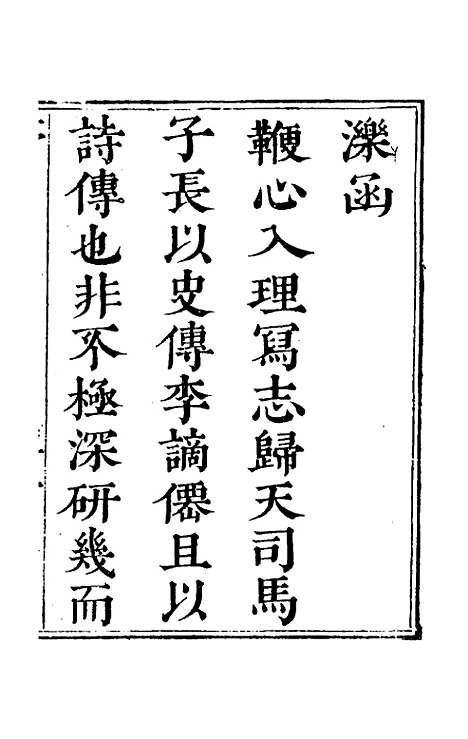 濼函
鞭心入理冩志歸天司馬
子長以史傳李謫僊且以
詩傳也非不極深研幾而